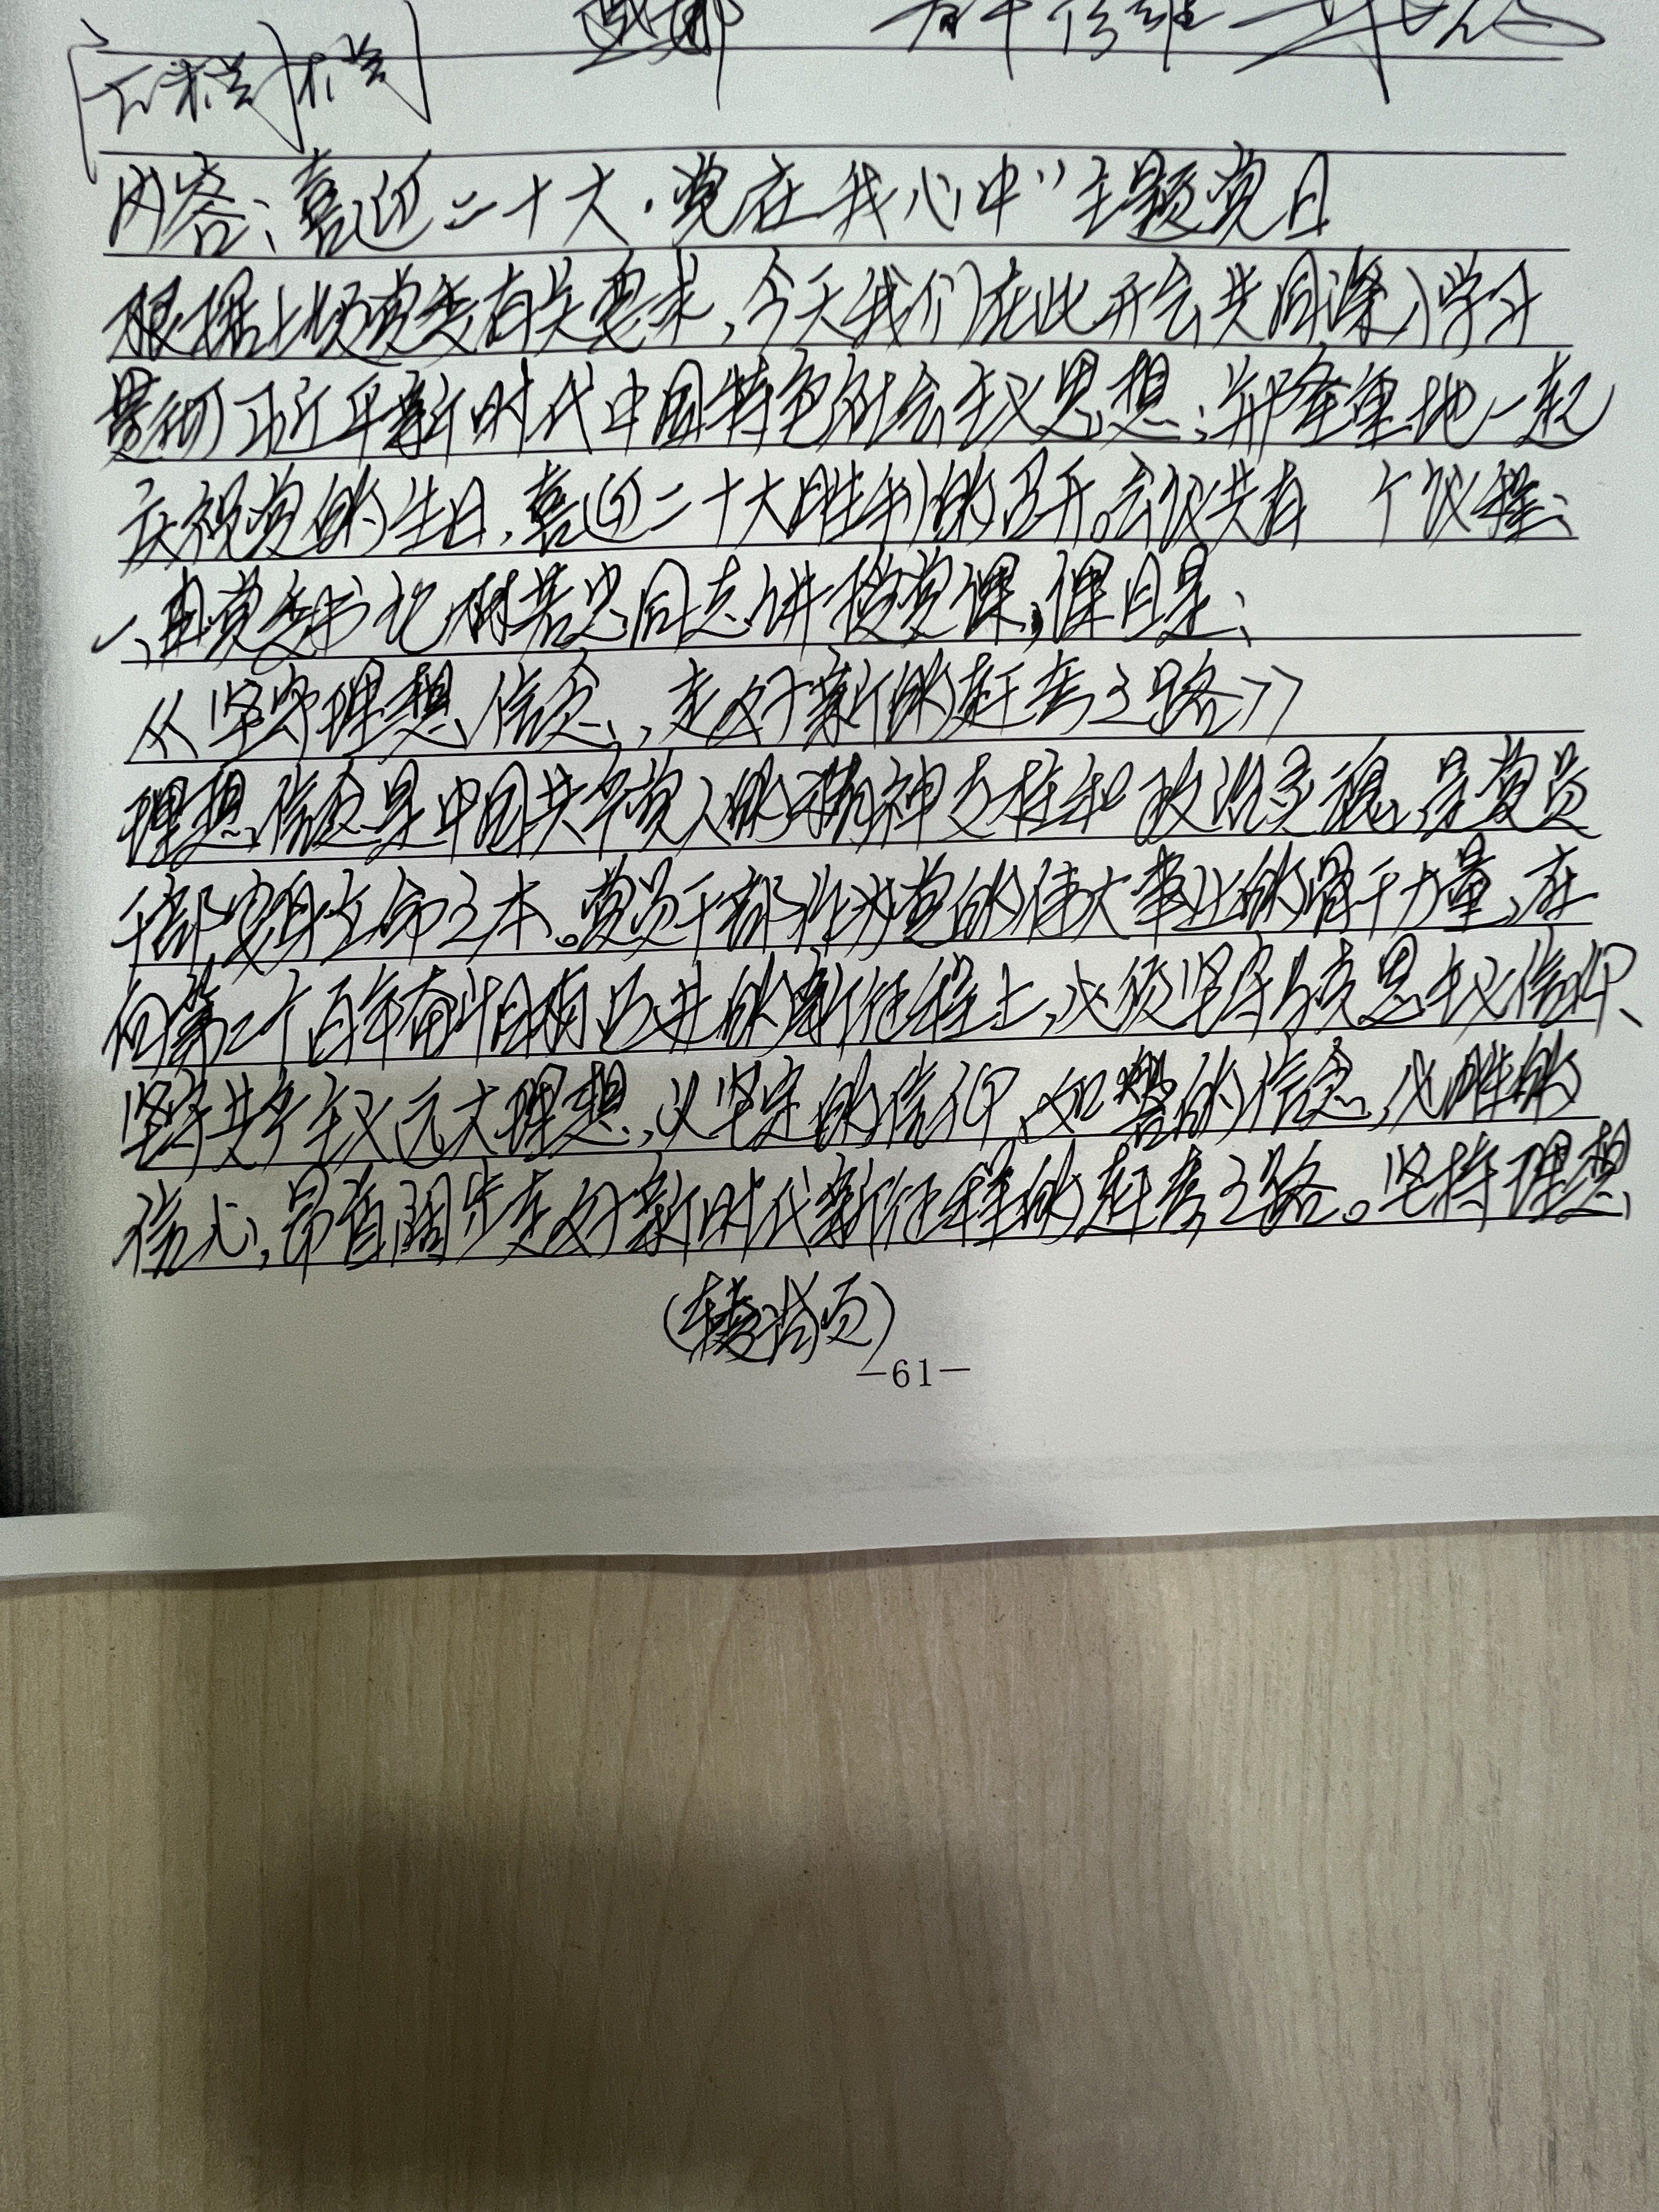 内容:喜迎二十大·党在我心中"主题党日
根据上级党委有关要求,今天我们在此开会共同深入学习
贯彻习近平新时代中国特色社会主义思想;并隆重地一起
庆祝党的生日,喜迎二十大胜利的召开。会议共有 个议程:
一、由党支书记 同志讲授党课,课目是:
《坚守理想信念,走好新的赶考之路》
理想信念是中国共产党人的精神支柱和政治灵魂,是党员
干部安身立命之本。党员干部作为党的伟大事业的骨干力量,在
向第二个百年奋斗目标迈进的新征程上,必须坚守马克思主义信仰、
坚守共产主义远大理想,以坚定的信仰、如磐的信念,必胜的
信心,昂首阔步走好新时代新征程的赶考之路。坚持理想
(转接 页)
-61-